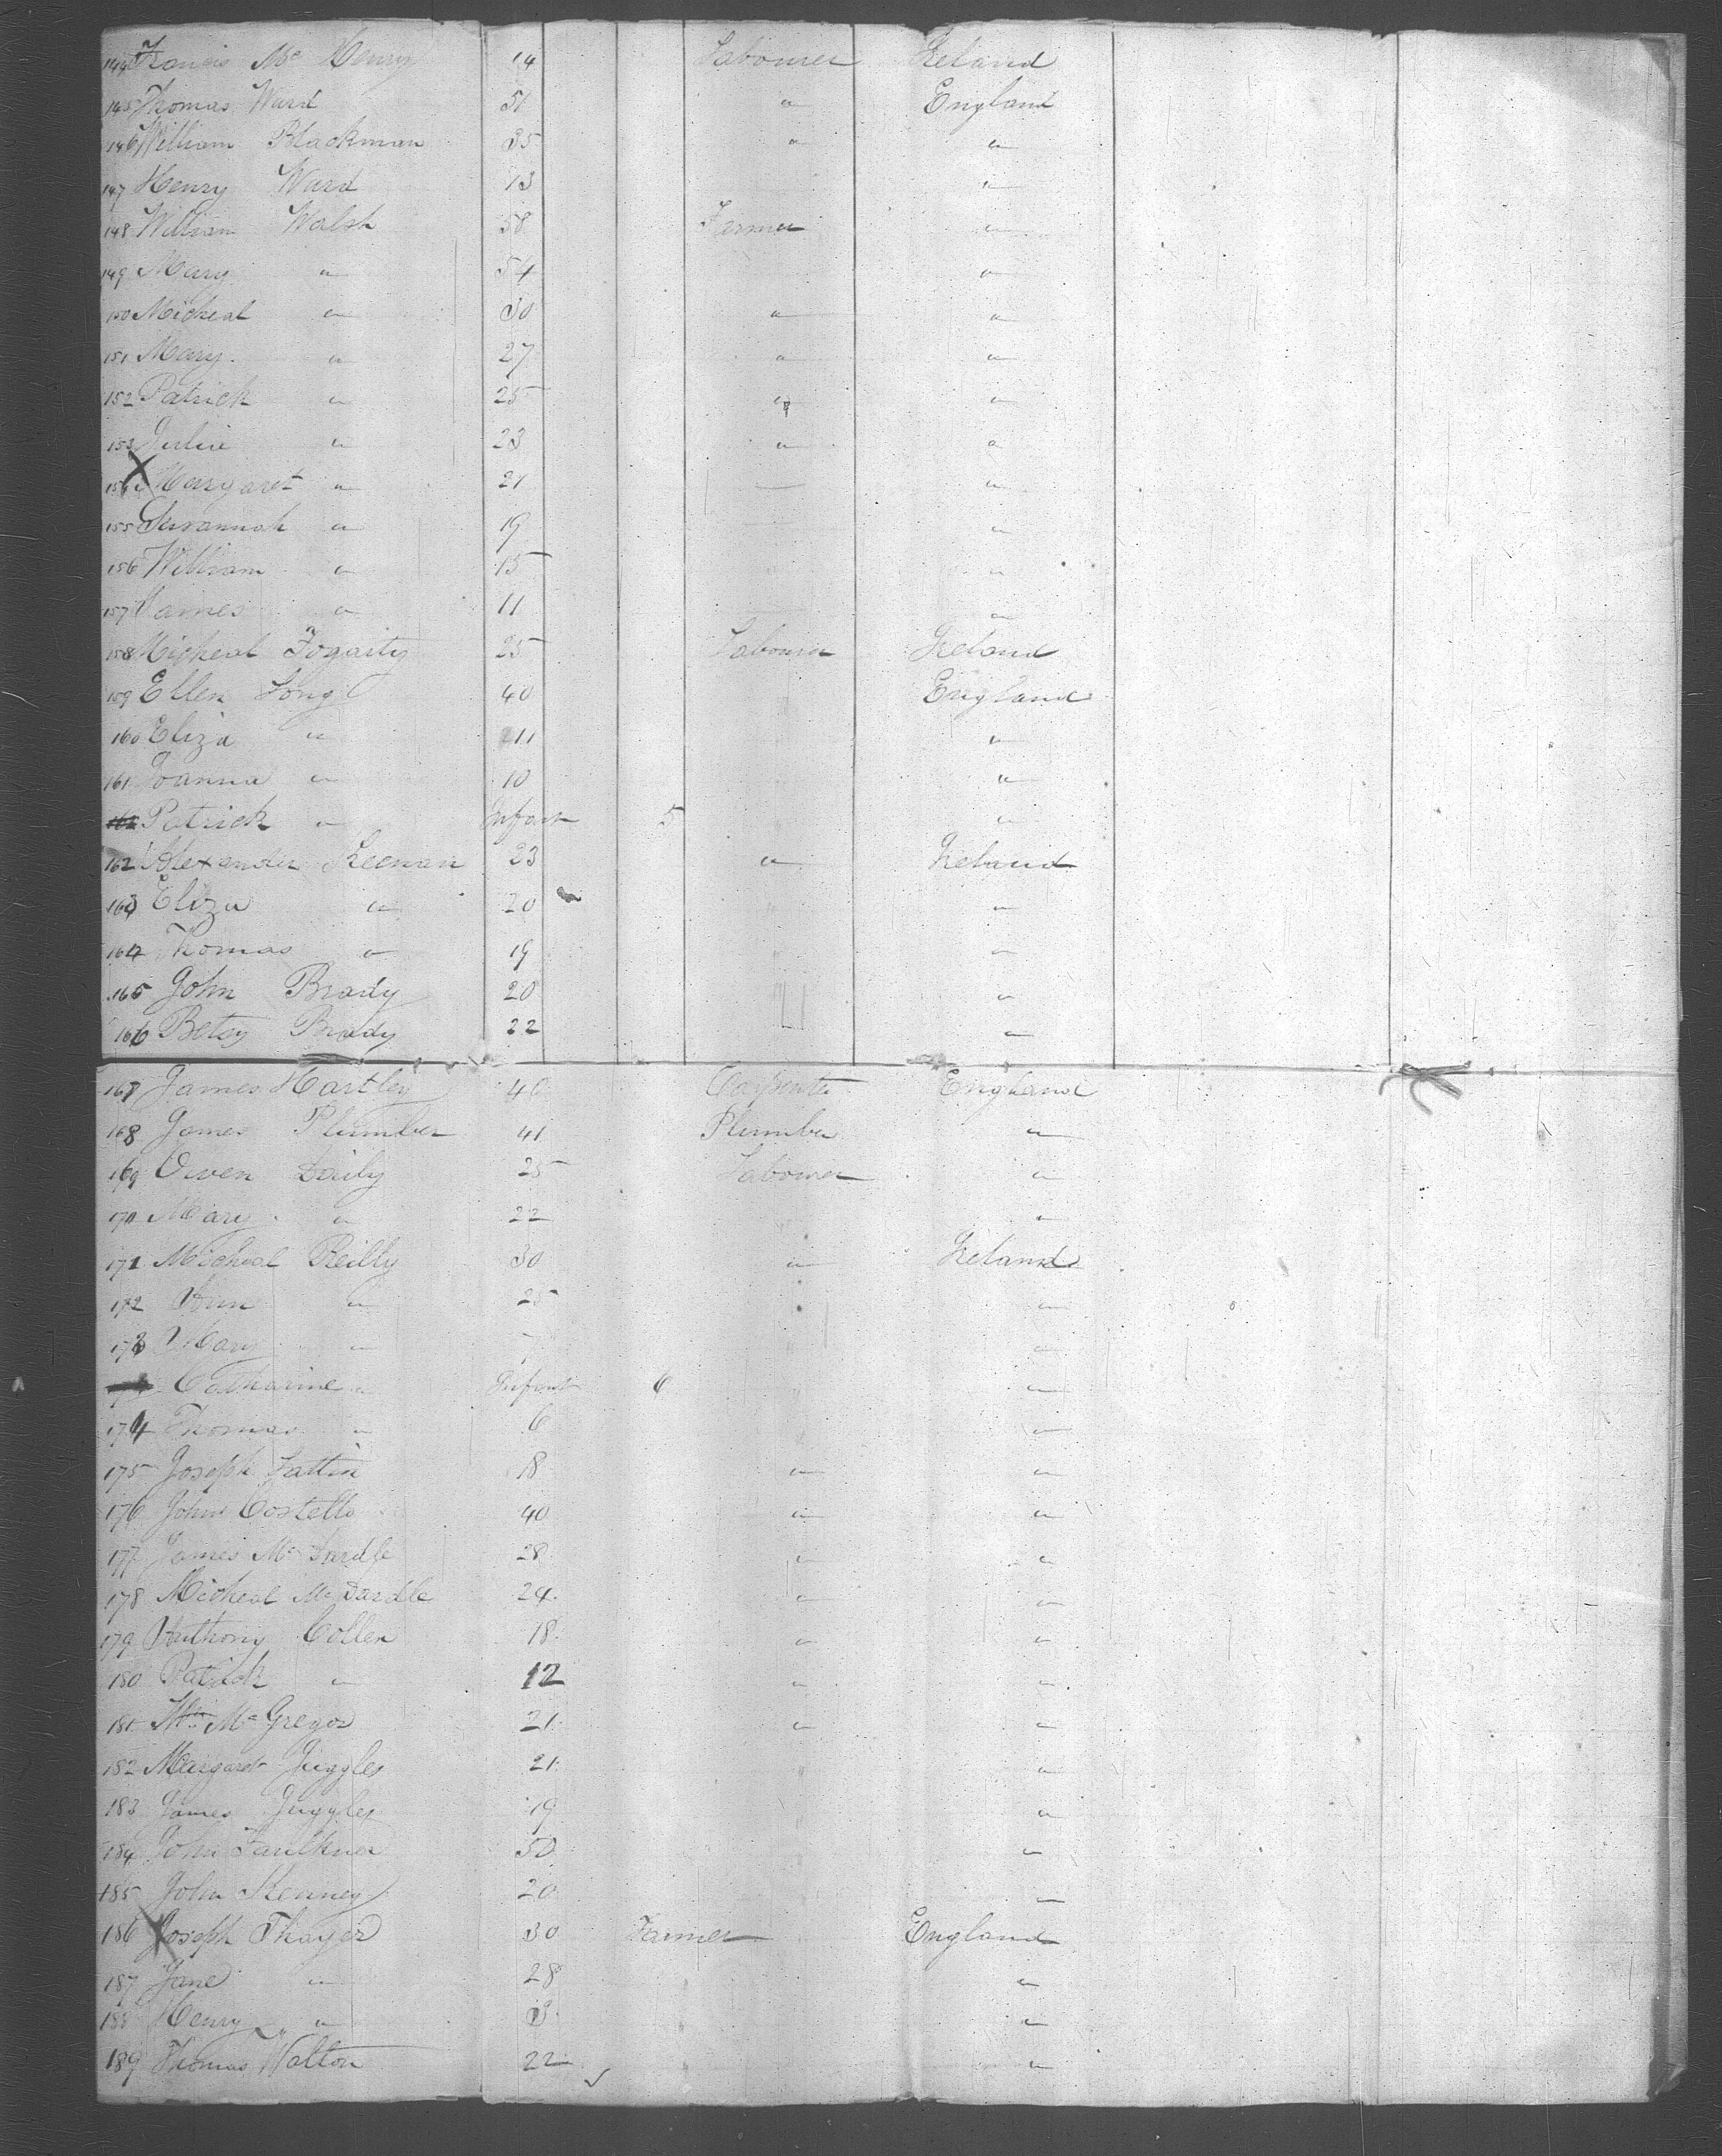 144 Francis Mc Henry 14 Labourer Ireland
145 Thomas Ward 51 " England
146 William Blackman 35 " "
147 Henry Ward 13 "
148 William Walsh 58 Farmer "
149 Mary " 54 "
150 Micheal " 30 " "
151 Mary " 27 " "
152 Patrick " 25 " "
153 Julia " 23 " "
154 X Margaret " 21 — "
155 Susannah " 19 "
156 William " 15 "
157 James " 11 "
158 Micheal Fogaity 25 Labourer Ireland
159 Ellen Long 40 England
160 Eliza " 11 "
161 Joanna " 10 "
162 Patrick " Infant 5 "
162 Alexander Keenan 23 " Ireland
163 Eliza " 20 "
164 Thomas " 19 "
165 John Brady 20 "
166 Betsy Brady 22 "
167 James Hartley 40 Carpenter England
168 James Plumber 41 Plumber "
169 Owen Daily 25 Labourer "
170 Mary " 22 "
171 Micheal Reilly 30 " Ireland
172 Ann " 25 "
173 Mary " 7 "
Catharine " Infant 6 "
174 Thomas " 6 "
175 Joseph Lattin 18 " "
176 John Costello 40 " "
177 James Mc Dardle 28 " "
178 Micheal Mc Dardle 24 " "
179 Anthony Collen 18 " "
180 Patrick " 12 " "
181 Wm Mc Gregor 21 " "
182 Margaret Juggles 21 "
183 James Juggles 19 "
184 John Faulkner 50 "
185 John Kenney 20 "
186 X Joseph Thayer 30 Farmer England
187 Jane " 28 "
188 Henry " 3 "
189 Thomas Walton 22 "